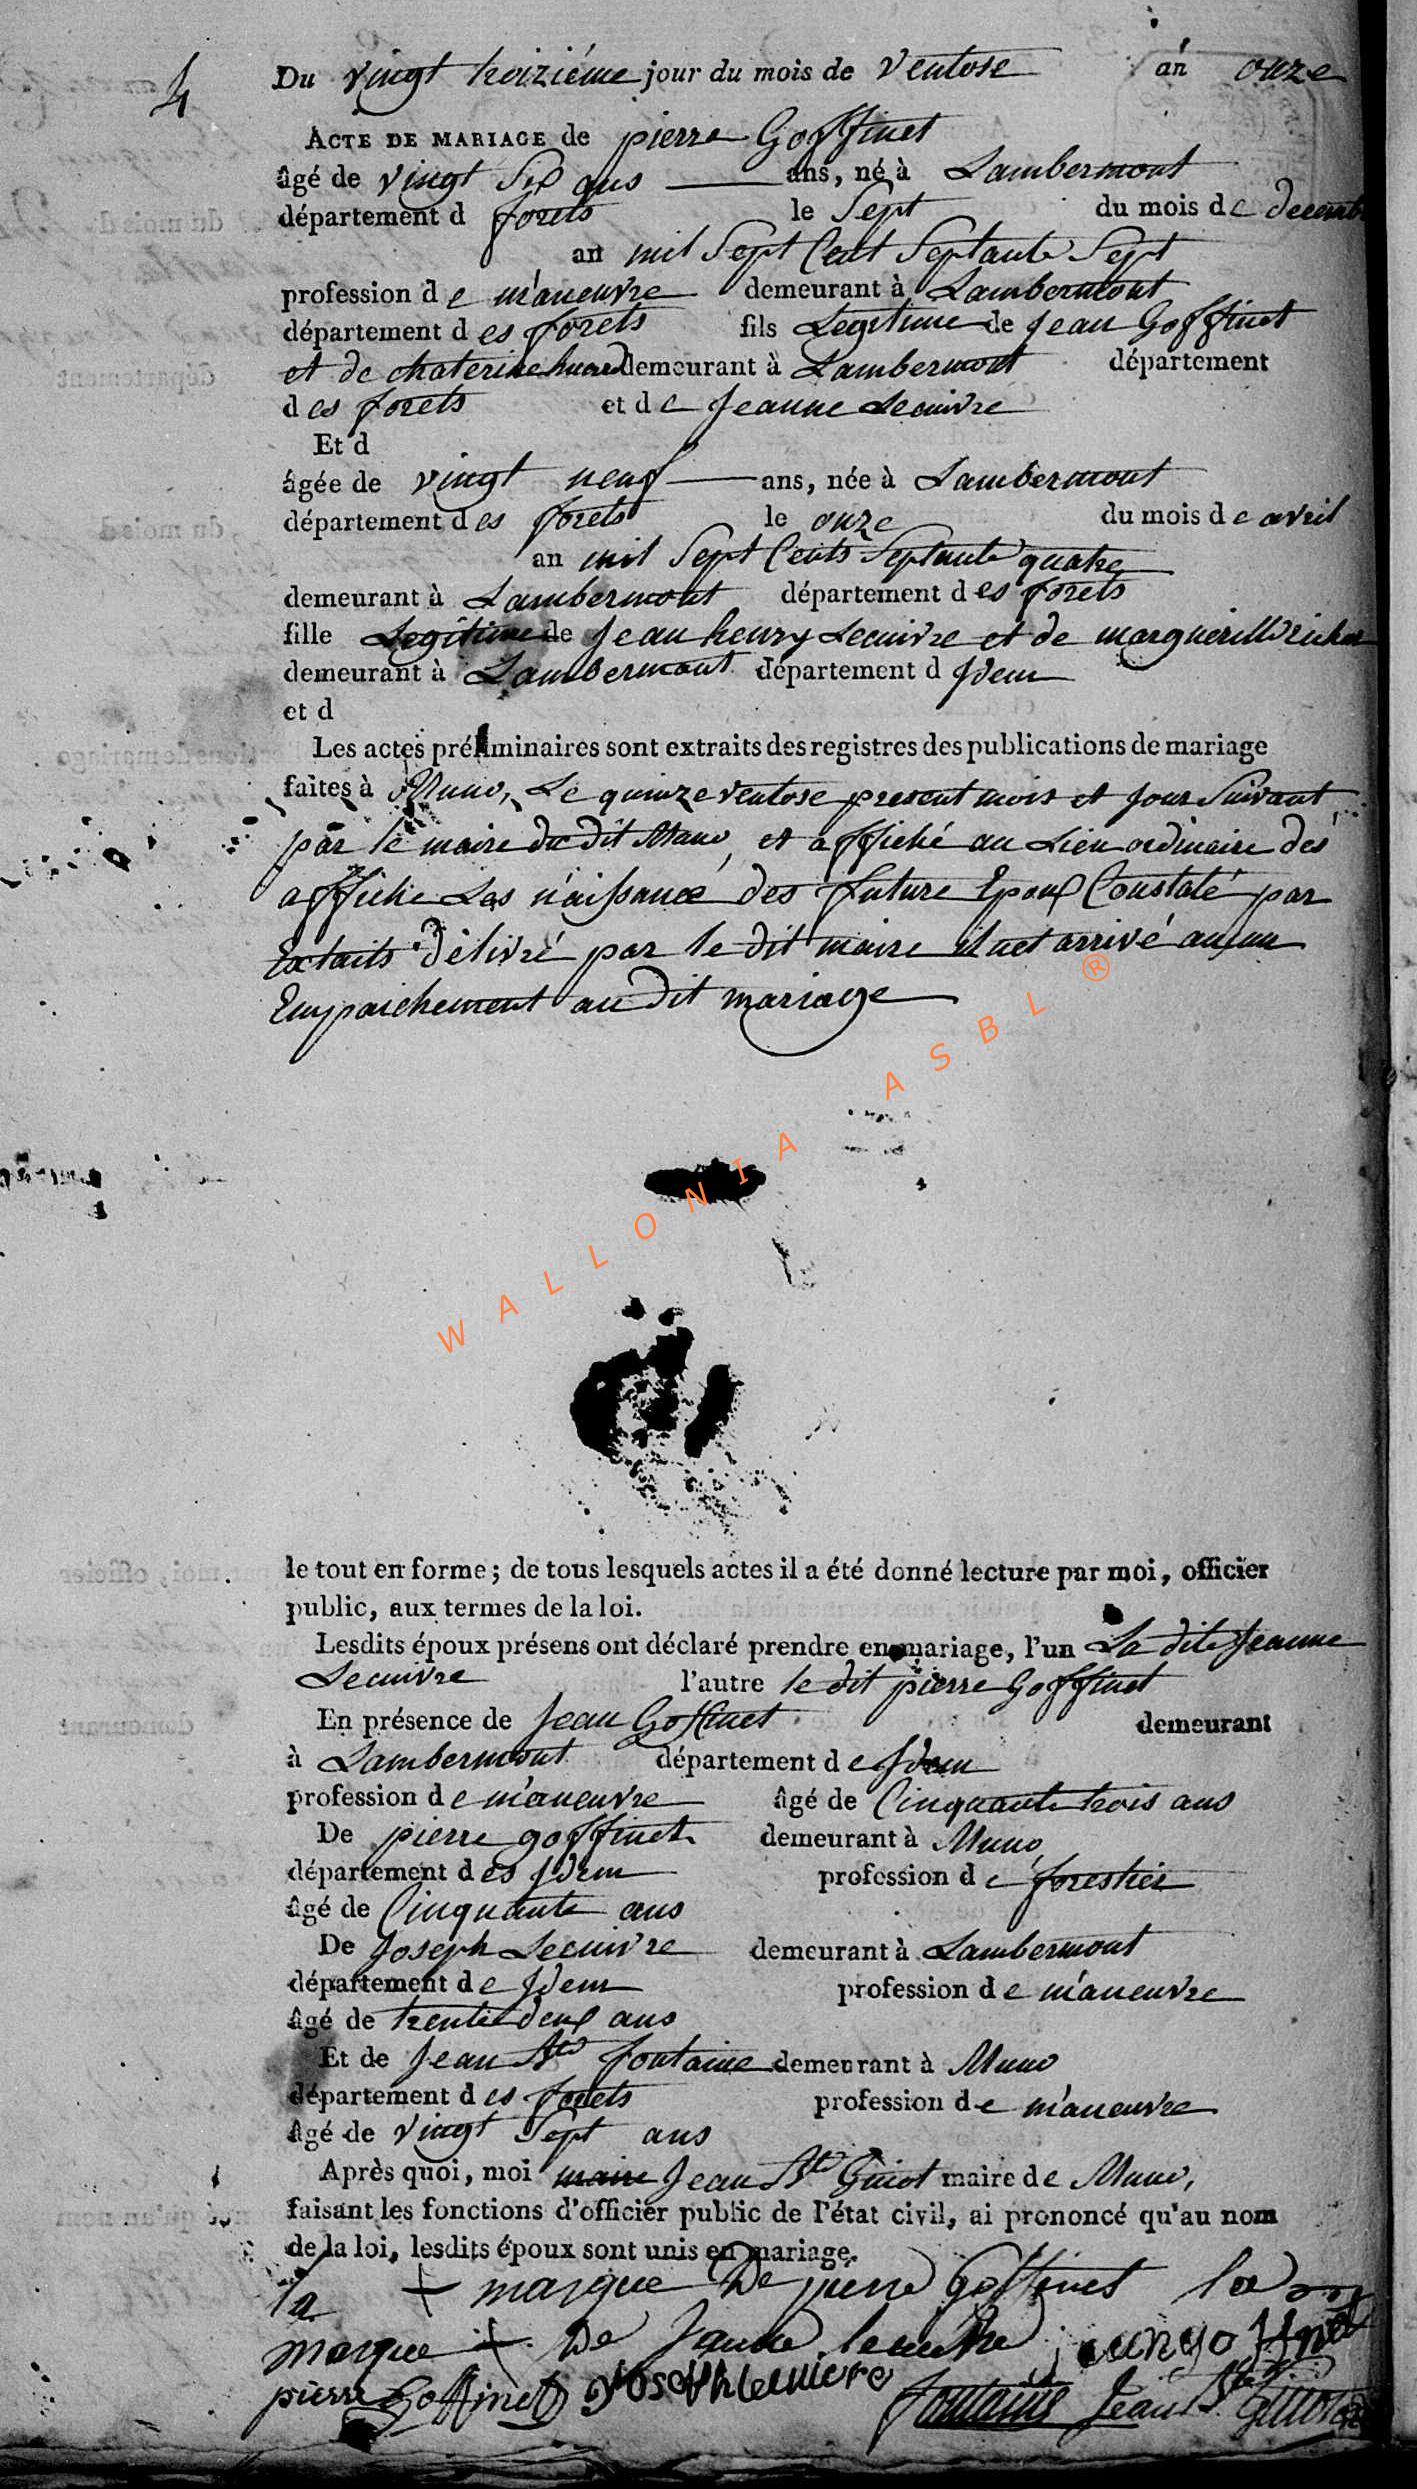 4
Du vingt troiziéme jour du mois de ventose án onze
ACTE DE MARIAGE de pierre Goffinet
âgé de vingt Six ans ans, né à Lambermont
département d forets le Sept du mois de decemb
an mil Sept Cent Septante Sept
profession de maneuvre demeurant à Lambermont
département des forets fils Legitime de Jean Goffinet
et de chaterine demeurant à Lambermont département
des forets et de Jeanne Lecuivre
Et d
âgée de vingt neuf ans, née à Lambermont
département des forets le onze du mois de avril
an mil Sept Cents Septante quatre
demeurant à Lambermont département des forets
fille Legitime de Jean henry Lecuivre et de
demeurant à Lambermont département d Jdem
et d
Les actes préliminaires sont extraits des registres des publications de mariage
faites à Muno, Le quinze ventose present mois et jour Suivant
par le maire du dit Muno, et affiché au Lieu ordinaire des
affiche Les naissance des future Epoux Constaté par
Extaits délivré par le dit maire il net arrivé aucun
Empaichement au dit mariage
WALLONIA ASBL ®
le tout en forme ; de tous lesquels actes il a été donné lecture par moi, officier
public, aux termes de la loi.
Lesdits époux présens ont déclaré prendre en mariage, l'un La dite Jeanne
Lecuivre l'autre le dit pierre Goffinet
En présence de Jean Goffinet demeurant
à Lambermont département de Jdem
profession de maneuvre âgé de Cinquante trois ans
De pierre goffinet demeurant à Muno
département des Jdem profession de forestier
âgé de Cinquante ans
De Joseph Lecuivre demeurant à Lambermont
département de Jdem profession de maneuvre
âgé de trente deux ans
Et de Jean Bte fontaine demeurant à Muno
département des forets profession de maneuvre
âgé de vingt Sept ans
Après quoi, moi maire Jean Bte Guiot maire de Muno,
faisant les fonctions d'officier public de l'état civil, ai prononcé qu'au nom
de la loi, lesdits époux sont unis en mariage.
la + marque De pierre goffinet la
marque + De Janne lecuivre
pierre Goffinet Joseph lecuivre fontaine Jean Bte guiot